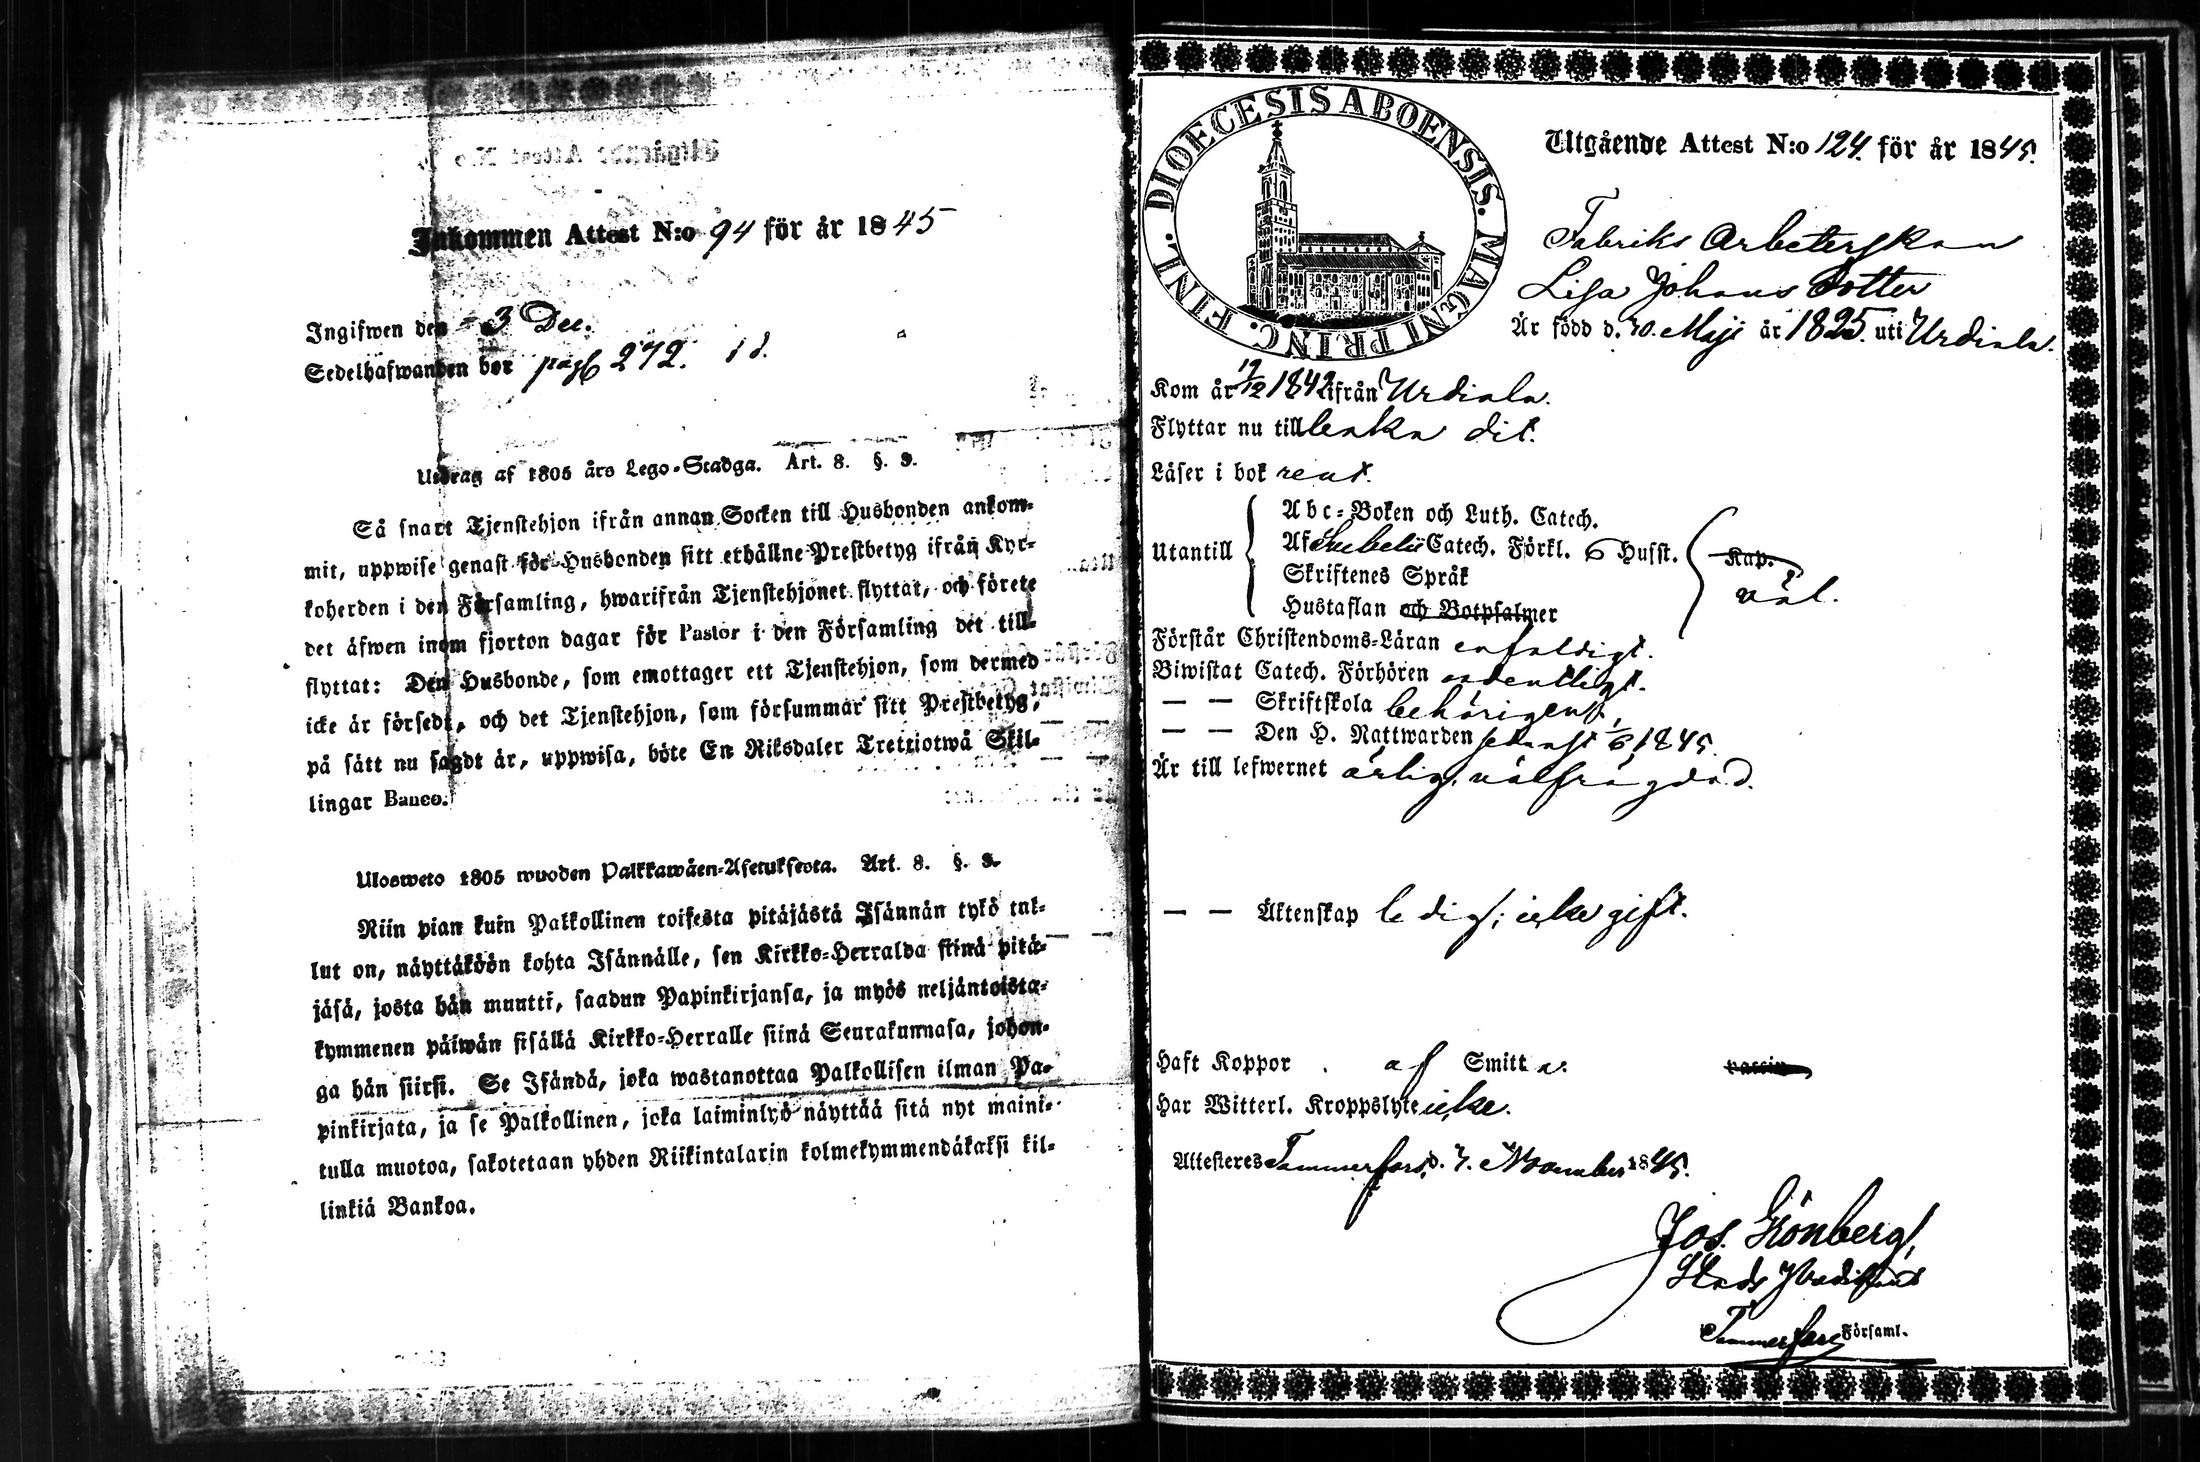 Inkommen Attest N:o 94 för år 1845
Ingifwen den 3 Dec.
Sedelhafwanden bor pag 272.
Utdrag af 1805 års Lego-Stadga. Art. 8. §. 9.
Så snart Tjenstehjon ifrån annan Socken till Husbonden ankom-
mit, uppwise genast för Husbonden sitt erhållne Prestbetyg ifrån Kyr-
koherden i den Församling, hwarifrån Tjenstehjonet flyttat, och förete
det äfwen inom fjorton dagar för Pastor i den Församling det till-
flyttat: Den Husbonde, som emottager ett Tjenstehjon, som dermed
icke är försedt, och det Tjenstehjon, som försummar sitt Prestbetyg,
på sätt nu sagdt är, uppwisa, böte En Riksdaler Trettiotwå Skil-
lingar Banco.
Ulosweto 1805 wuoden Palkkawäen-Asetuksesta. Art. 8. §. 9.
Niin pian kuin Palkollinen toisesta pitäjästä Isännän tykö tul-
lut on, näyttäköön kohta Isännälle, sen Kirkko-Herralda siinä pitä-
jäsä, josta hän muutti, saadun Papinkirjansa, ja myös neljäntoista-
kymmenen päiwän sisällä Kirkko-Herralle siinä Seurakunnasa, johon-
ga hän siirsi. Se Isändä, joka wastanottaa Palkollisen ilman Pa-
pinkirjata, ja se Palkollinen, joka laiminlyö näyttää sitä nyt maini-
tulla muotoa, sakotetaan yhden Riikintalarin kolmekymmendäkaksi kil-
linkiä Bankoa.
DIOECESIS ABOENSIS. MAGNI PRINC. FINL.
Utgående Attest N:o 124. för år 1845.
Fabriks Arbeterskan
Lisa Johans Dotter
Är född d. 10. Maji år 1825. uti Urdiala.
Kom år 12/12 1842 ifrån Urdiala.
Flyttar nu till bakа dit.
Läser i bok rent.
Utantill
Abc-Boken och Luth. Catech.
Af Svebelii Catech. Förkl. 6 Husst. Kap.
Skriftenes Språk
väl.
Hustaflan och Botpsalmer
Förstår Christendoms-Läran enfaldigt.
Biwistat Catech. Förhören ordentligt.
— — Skriftskola behörigen,
— — Den H. Nattwarden sednast 1/6 1845
Är till lefwernet ärlig, välfrägdad.
— — Äktenskap ledig; icke gift.
Haft Koppor af Smitta.
Har Witterl. Kroppslyte icke.
Attesteres Tammerfors, d. 7. November 1845.
Jos. Grönberg,
Stads Predikant
Tammerfors Församl.